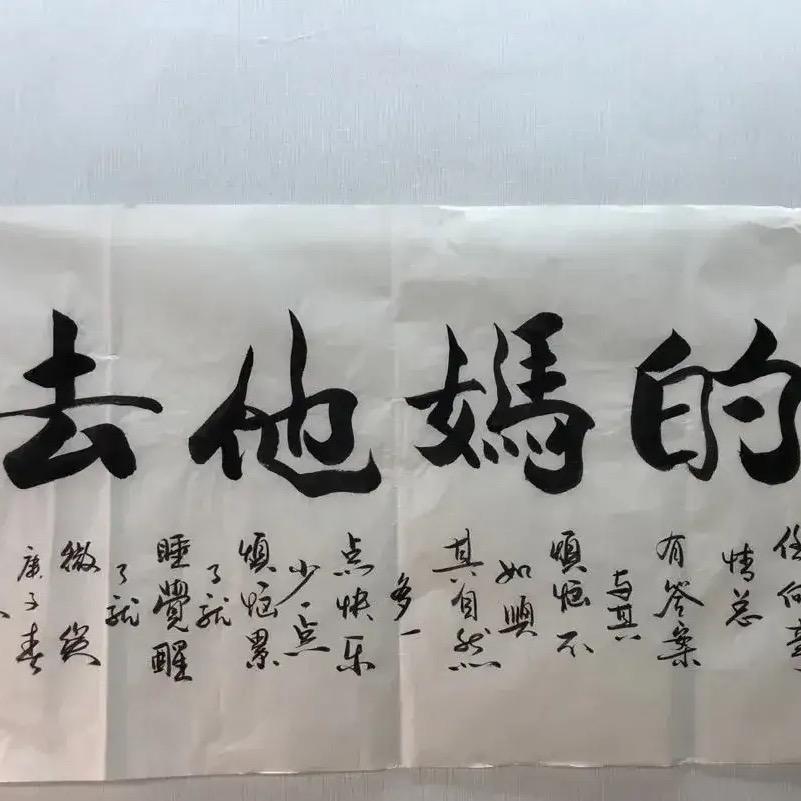 去他媽的
任何事
情总
有答案
与其
煩恼不
如順
其自然
多一
点快乐
少一点
煩恼累
了就
睡覺醒
了就
微笑
庚子春